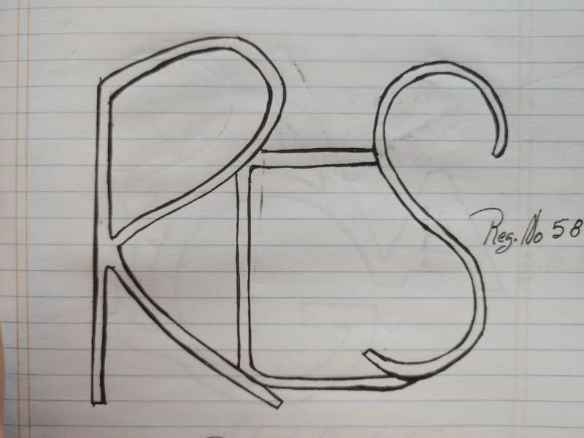 RCS
Reg. No 58